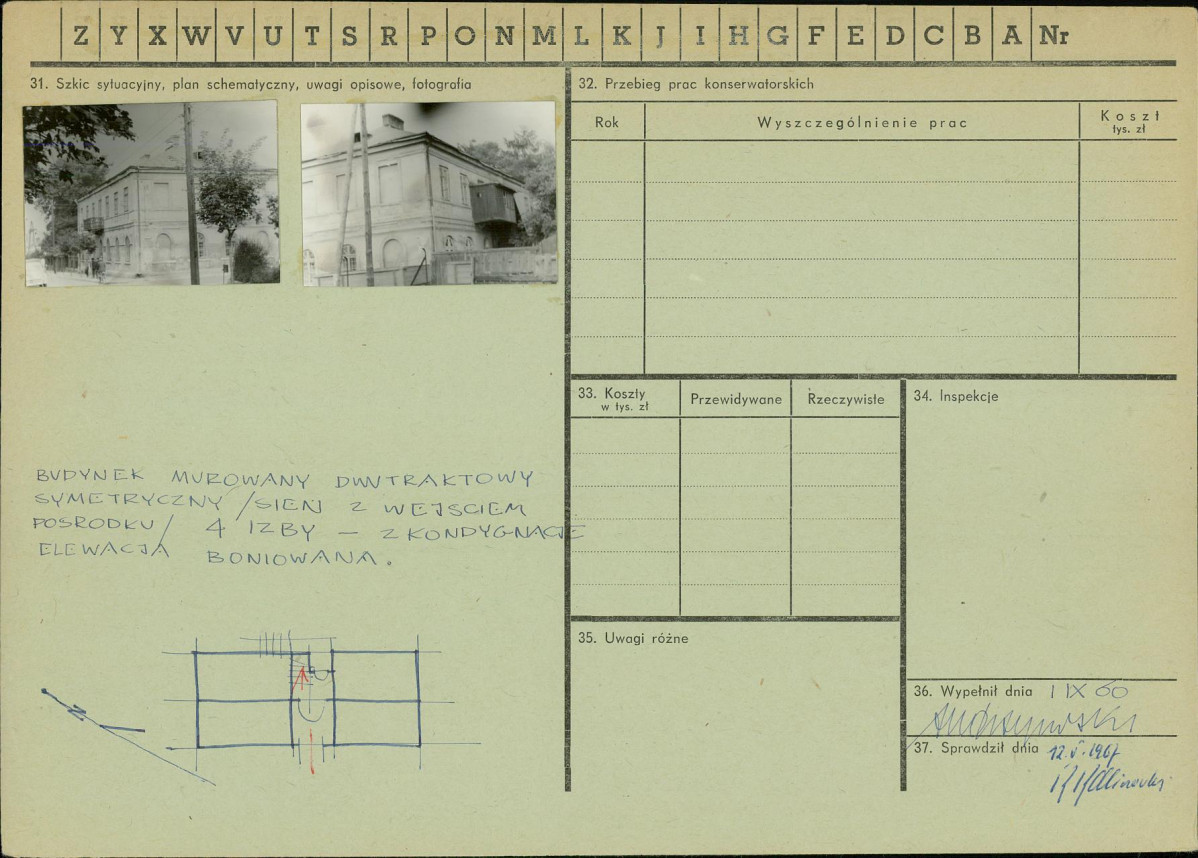 Z Y X W V U T S R P O N M L K J I H G F E D C B A Nr
31. Szkic sytuacyjny, plan schematyczny, uwagi opisowe, fotografia
BUDYNEK MUROWANY DWUTRAKTOWY
SYMETRYCZNY /SIEŃ Z WEJSCIEM
POSRODKU/ 4 IZBY — 2 KONDYGNACJE
ELEWACJA BONIOWANA.
N
32. Przebieg prac konserwatorskich
Rok
Wyszczególnienie prac
Koszt
tys. zł
33. Koszty
w tys. zł
Przewidywane
Rzeczywiste
34. Inspekcje
35. Uwagi różne
36. Wypełnił dnia 1 IX 60
37. Sprawdził dnia 12.V.1967